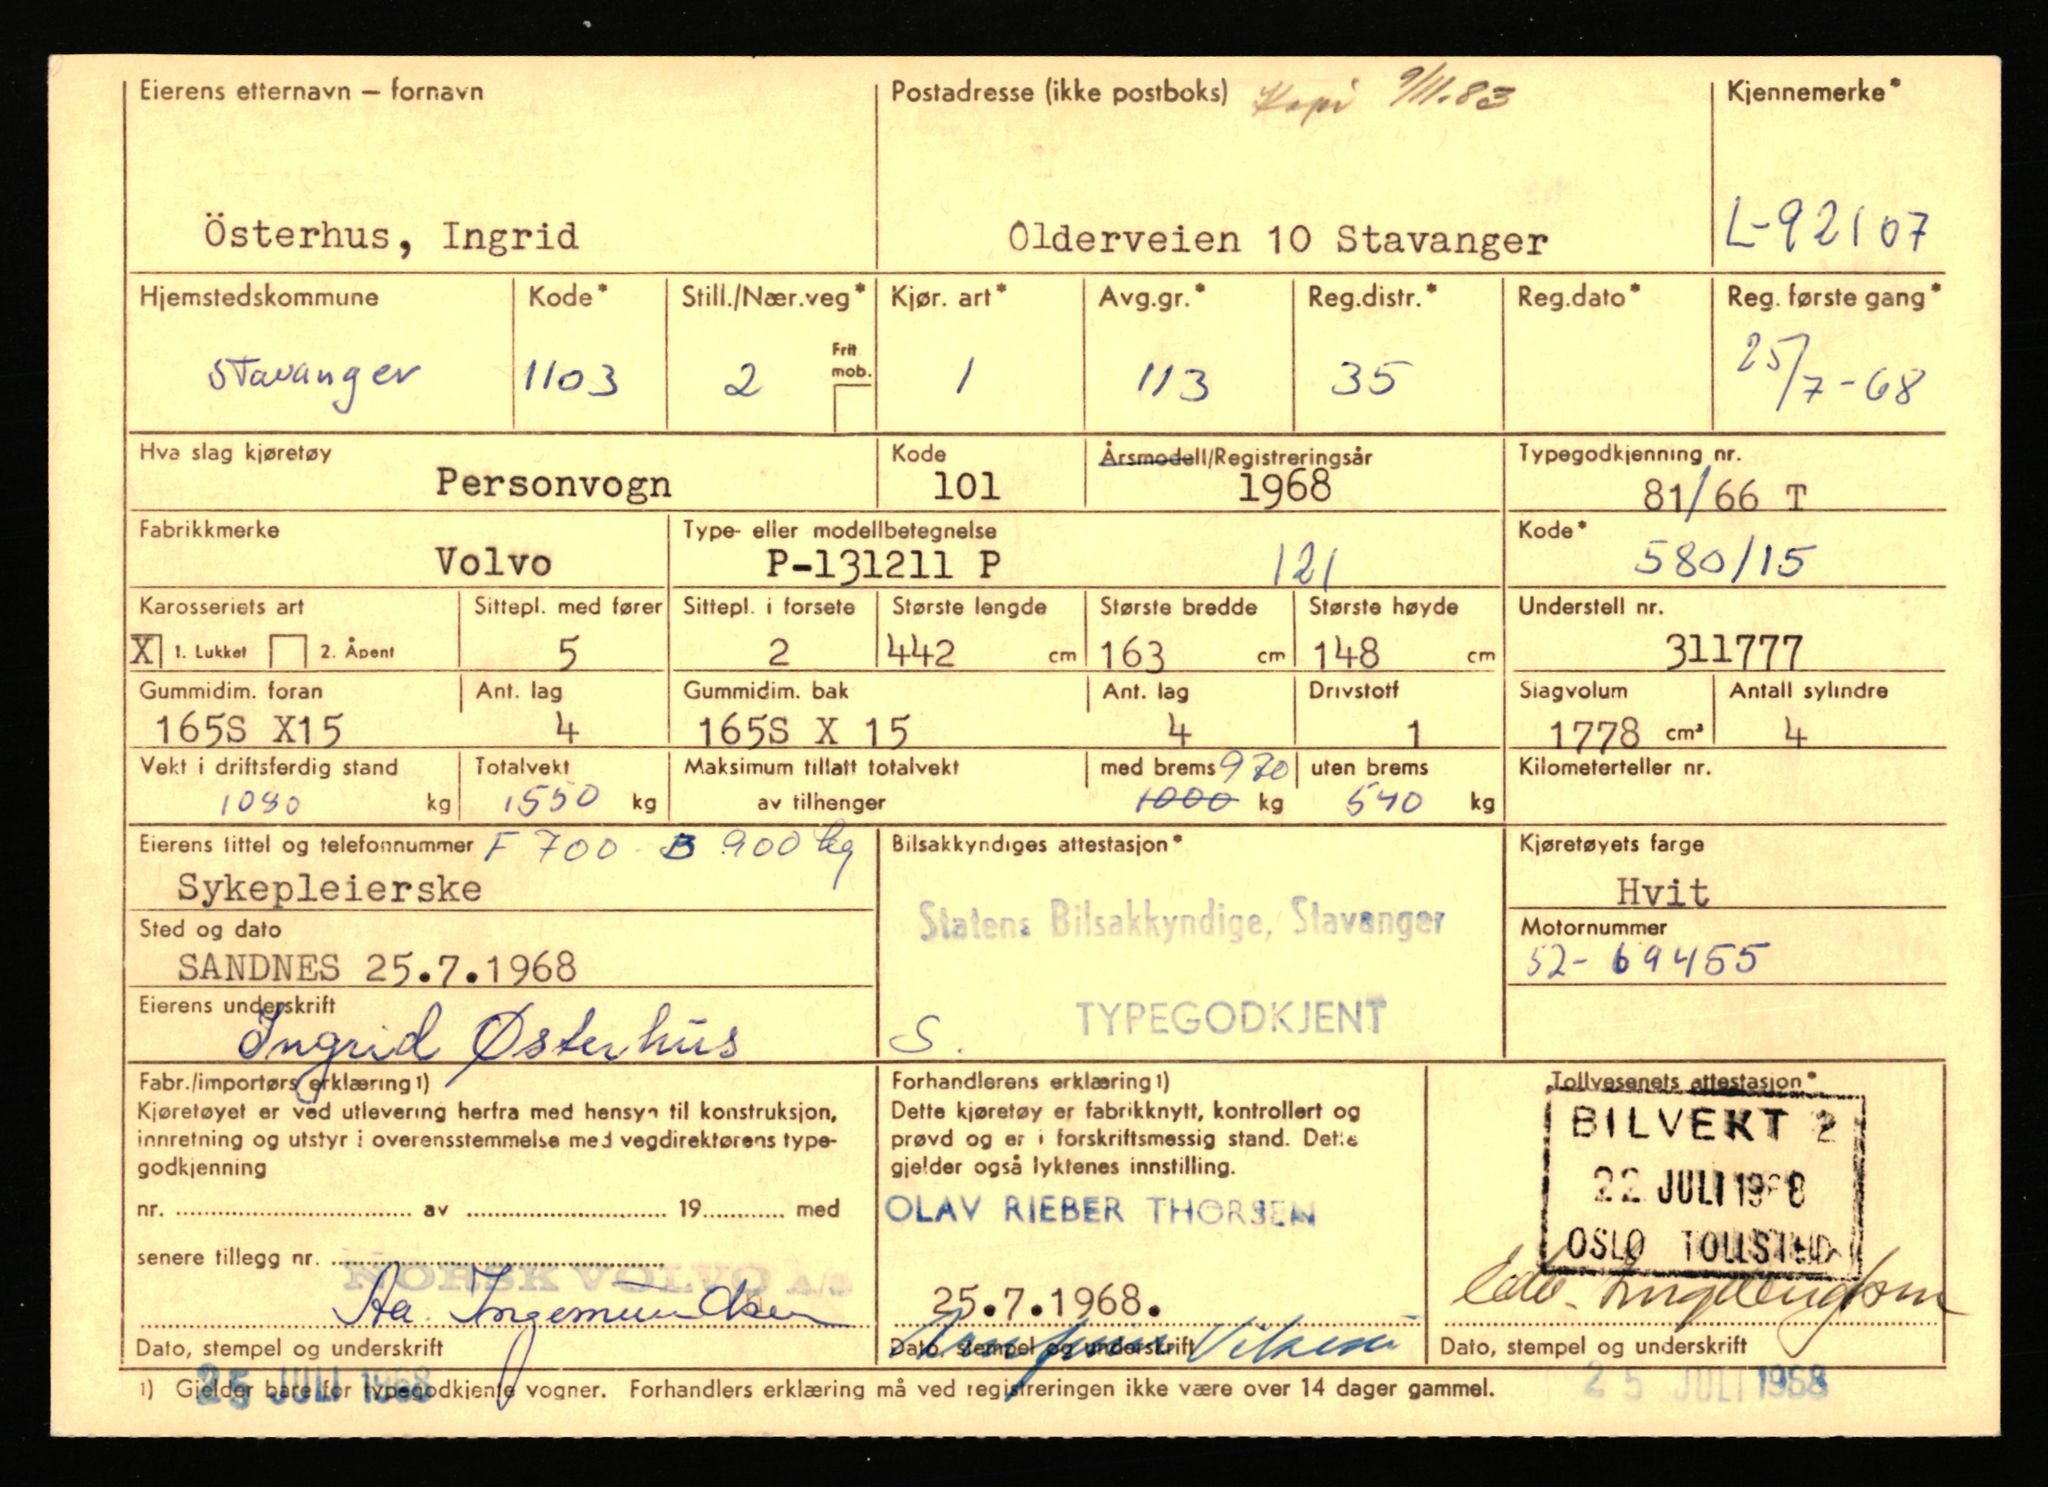 Eierens etternavn – fornavn
Postadresse (ikke postboks) Kopi 9/11-83
Kjennemerke*
Österhus, Ingrid
Olderveien 10 Stavanger
L-92107
Hjemstedskommune Kode* Still./Nær.veg* Kjør. art* Avg.gr.* Reg.distr.* Reg.dato* Reg. første gang*
Frit mob.
Stavanger 1103 2 1 113 35 25/7-68
Hva slag kjøretøy Kode Årsmodell/Registreringsår Typegodkjenning nr.
Personvogn 101 1968 81/66 T
Fabrikkmerke Type- eller modellbetegnelse Kode*
Volvo P-131211 P 121 580/15
Karosseriets art Sittepl. med fører Sittepl. i forsete Største lengde Største bredde Største høyde Understell nr.
X 1. Lukket 2. Åpent 5 2 442 cm 163 cm 148 cm 311777
Gummidim. foran Ant. lag Gummidim. bak Ant. lag Drivstoff Slagvolum Antall sylindre
165S X15 4 165S X 15 4 1 1778 cm³ 4
Vekt i driftsferdig stand Totalvekt Maksimum tillatt totalvekt med brems 970 uten brems Kilometerteller nr.
1080 kg 1550 kg av tilhenger 1000 kg 540 kg
Eierens tittel og telefonnummer F 700 B 900 kg Bilsakkyndiges attestasjon* Kjøretøyets farge
Sykepleierske
Hvit
Statens Bilsakkyndige, Stavanger
Sted og dato
Motornummer
SANDNES 25.7.1968
52-69455
Eierens underskrift
Ingrid Østerhus
S. TYPEGODKJENT
Fabr./importørs erklæring 1)
Kjøretøyet er ved utlevering herfra med hensyn til konstruksjon,
innretning og utstyr i overensstemmelse med vegdirektørens type-
godkjenning
nr. av 19 med
senere tillegg nr.
NORSK VOLVO A/S
Aa. Ingemundsen
Dato, stempel og underskrift
25 JULI 1968
Forhandlerens erklæring 1)
Dette kjøretøy er fabrikknytt, kontrollert og
prøvd og er i forskriftsmessig stand. Dette
gjelder også lyktenes innstilling.
OLAV RIEBER THORSEN
25.7.1968.
Dato, stempel og underskrift
Tollvesenets attestasjon*
BILVEKT 2
22 JULI 1968
OSLO TOLLSTED
Dato, stempel og underskrift
25 JULI 1968
1) Gjelder bare for typegodkjente vogner. Forhandlers erklæring må ved registreringen ikke være over 14 dager gammel.